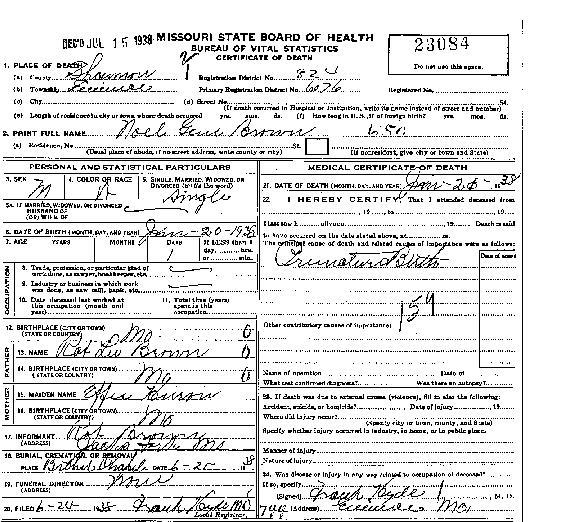 REC'D JUL 15 1938
MISSOURI STATE BOARD OF HEALTH
BUREAU OF VITAL STATISTICS
CERTIFICATE OF DEATH
23084
Do not use this space.
1. PLACE OF DEATH
(a) County Shannon Registration District No. 824
(b) Township Primary Registration District No. 6076 Registered No.
(c) City (d) Street No. St.
(If death occurred in Hospital or Institution, write its name instead of street and number)
(e) Length of residence in city or town where death occurred yrs. mos. ds. (f) How long in U.S., if of foreign birth? yrs. mos. ds.
2. PRINT FULL NAME Noel Gene Brown 650
(a) Residence, No. St.
(Usual place of abode, if no street address, write county or city) (If nonresident, give city or town and State)
PERSONAL AND STATISTICAL PARTICULARS
3. SEX M
4. COLOR OR RACE W
5. SINGLE, MARRIED, WIDOWED, OR DIVORCED (write the word) Single
5A. IF MARRIED, WIDOWED, OR DIVORCED HUSBAND OF (OR) WIFE OF
6. DATE OF BIRTH (MONTH, DAY, AND YEAR) 20-1938
7. AGE YEARS MONTHS DAYS If LESS than 1 day, hrs. or min.
OCCUPATION
8. Trade, profession, or particular kind of work done, as sawyer, bookkeeper, etc.
9. Industry or business in which work was done, as saw mill, bank, etc.
10. Date deceased last worked at this occupation (month and year)
11. Total time (years) spent in this occupation
12. BIRTHPLACE (CITY OR TOWN) (STATE OR COUNTRY) Mo 0
FATHER
13. NAME Brown 0
14. BIRTHPLACE (CITY OR TOWN) (STATE OR COUNTRY) Mo 0
MOTHER
15. MAIDEN NAME Effie
16. BIRTHPLACE (CITY OR TOWN) (STATE OR COUNTRY) Mo
17. INFORMANT Brown
(ADDRESS) Mo
18. BURIAL, CREMATION OR REMOVAL
PLACE DATE 6-25 38
19. FUNERAL DIRECTOR None
(ADDRESS)
20. FILED 6-24 1938 Frank Hyde
Local Registrar.
MEDICAL CERTIFICATE OF DEATH
21. DATE OF DEATH (MONTH, DAY, AND YEAR) 38
22. I HEREBY CERTIFY, That I attended deceased from
, 19 , to , 19
I last saw h alive on , 19 Death is said
to have occurred on the date stated above, at m.
The principal cause of death and related causes of importance were as follows:
Date of onset
Premature Birth
159
Other contributory causes of importance:
Name of operation Date of
What test confirmed diagnosis? Was there an autopsy?
23. If death was due to external causes (violence), fill in also the following:
Accident, suicide, or homicide? Date of injury , 19
Where did injury occur?
(Specify city or town, county, and State)
Specify whether injury occurred in industry, in home, or in public place.
Manner of injury
Nature of injury
24. Was disease or injury in any way related to occupation of deceased?
If so, specify
(Signed) Frank Hyde
(Address) Mo